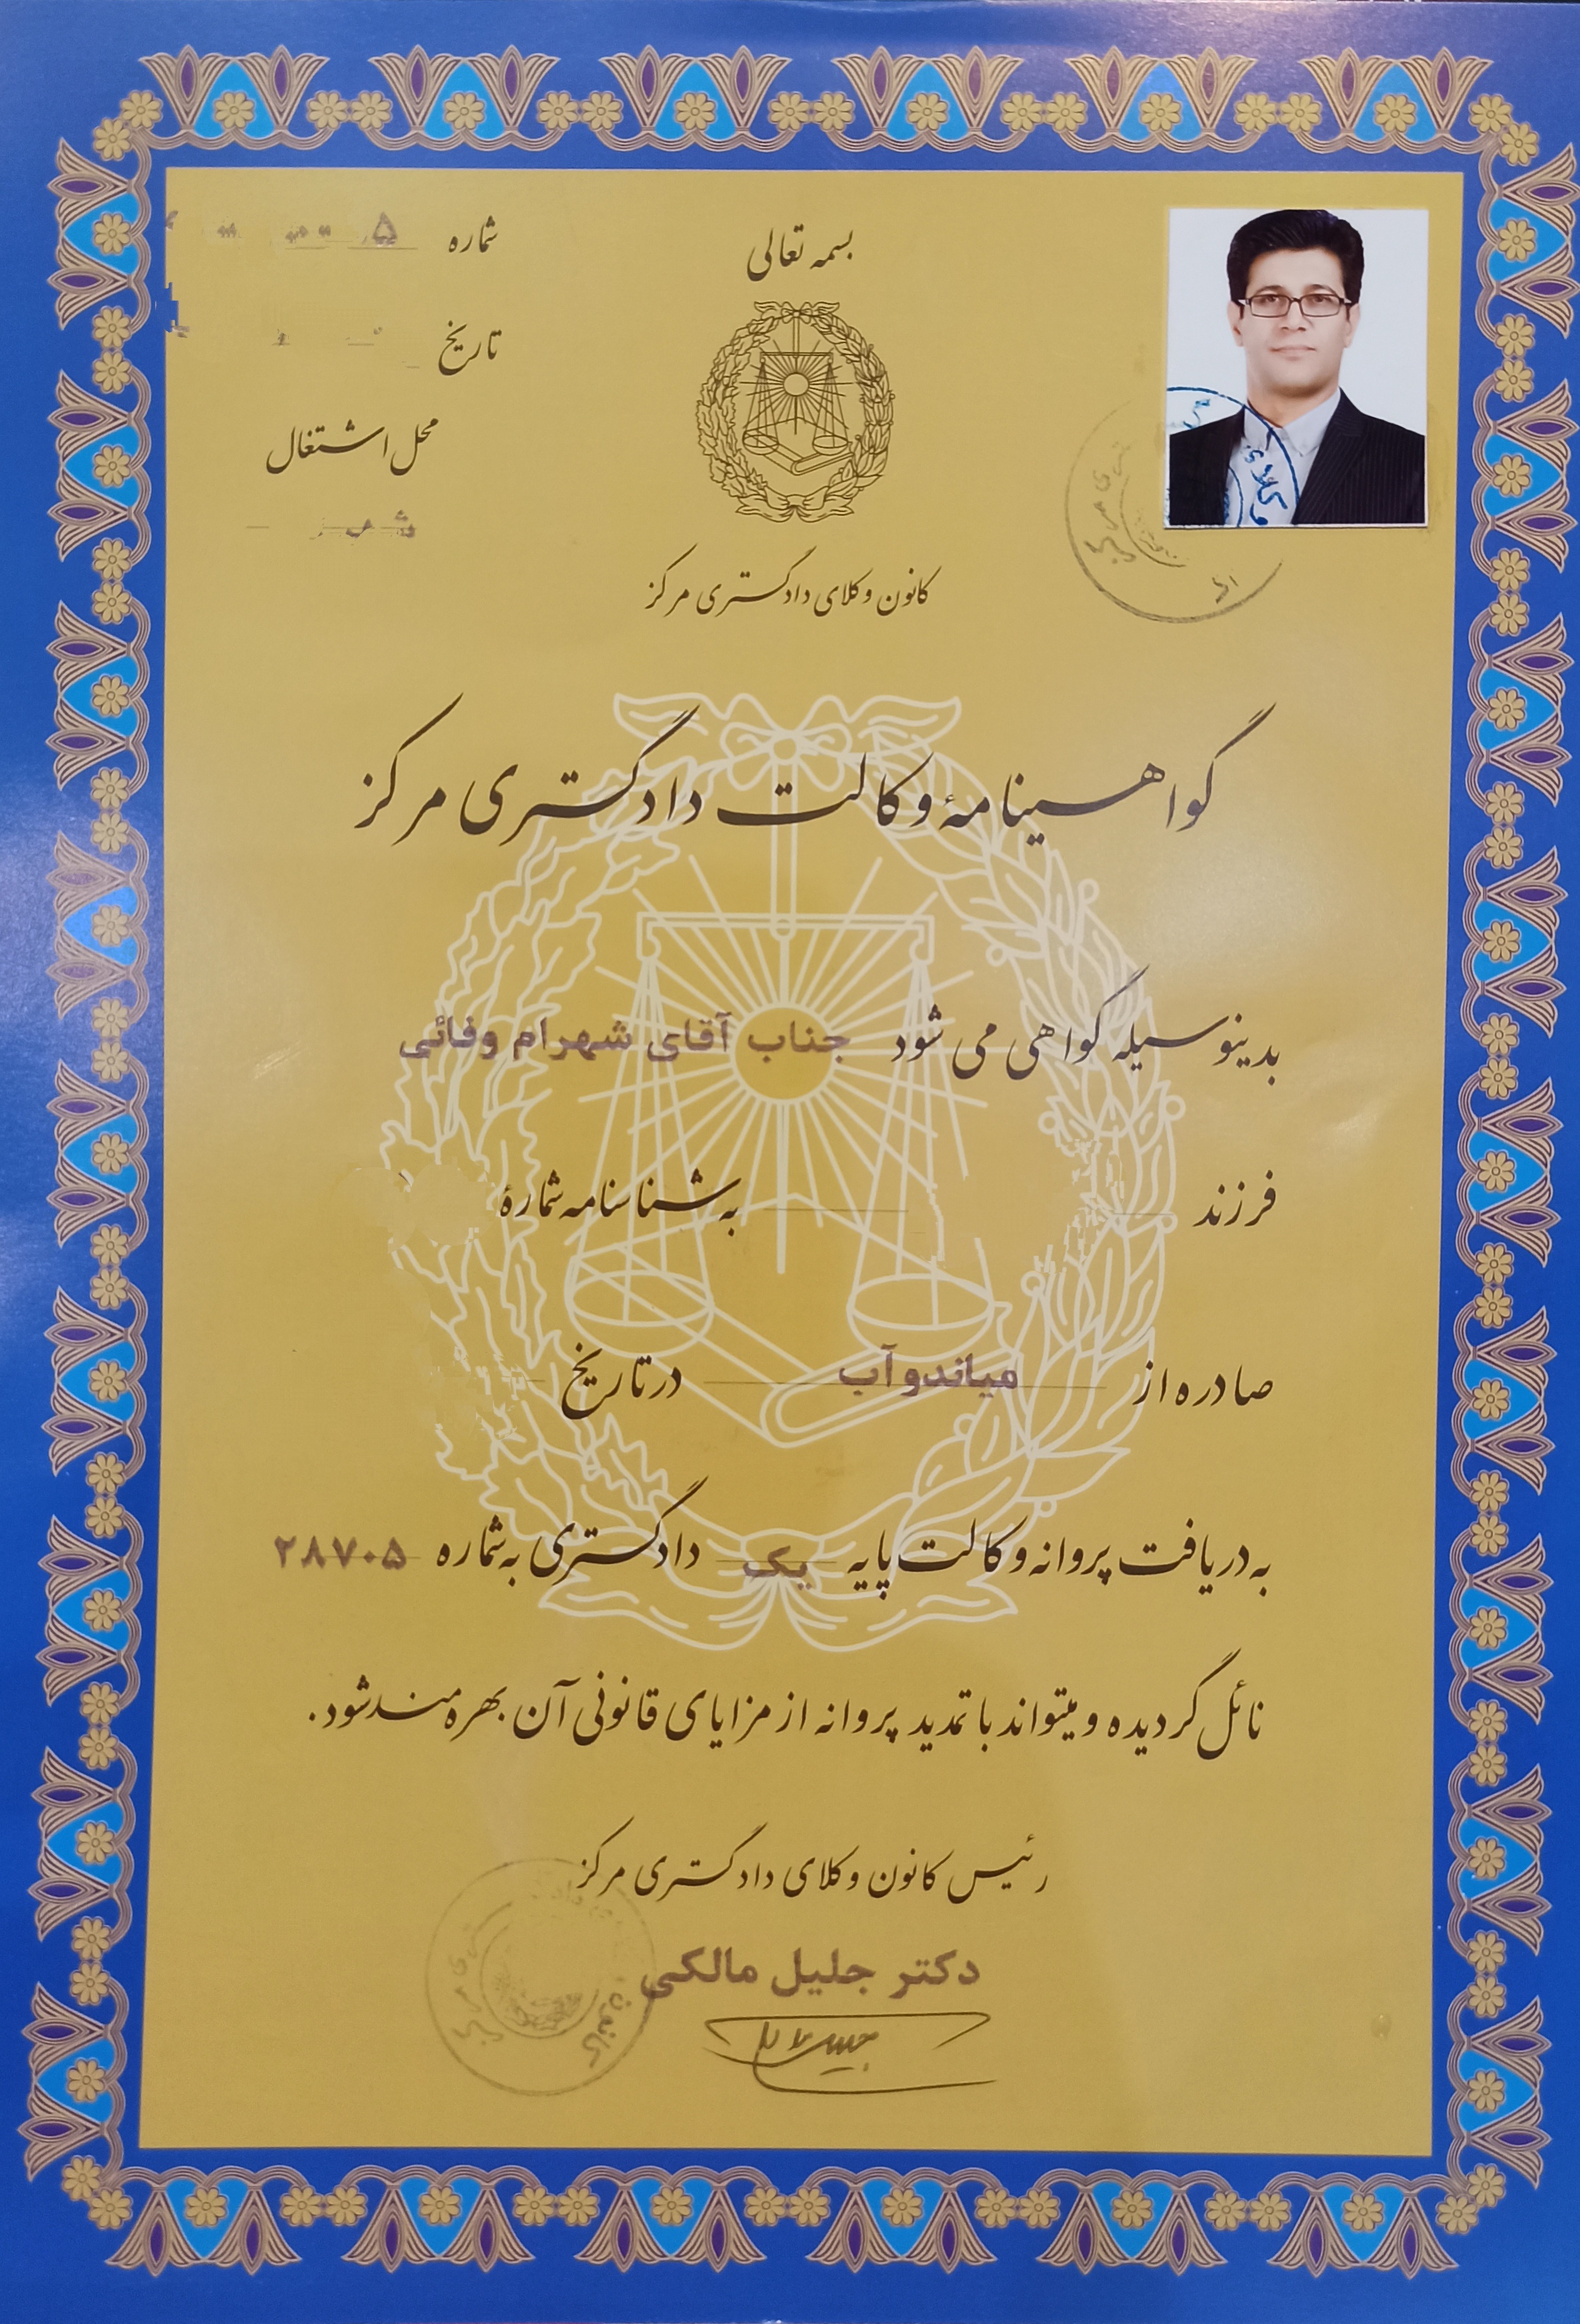 بسمه تعالی
شماره
تاریخ
محل اشتغال
کانون وکلای دادگستری مرکز
گواهینامهٔ وکالت دادگستری مرکز
بدینوسیله گواهی می شود جناب آقای شهرام وفائی
فرزند به شناسنامه شمارهٔ
صادره از میاندوآب در تاریخ
به دریافت پروانه وکالت پایه یک دادگستری به شماره ۲۸۷۰۵
نائل گردیده و میتواند با تمدید پروانه از مزایای قانونی آن بهره مند شود.
رئیس کانون وکلای دادگستری مرکز
دکتر جلیل مالکی